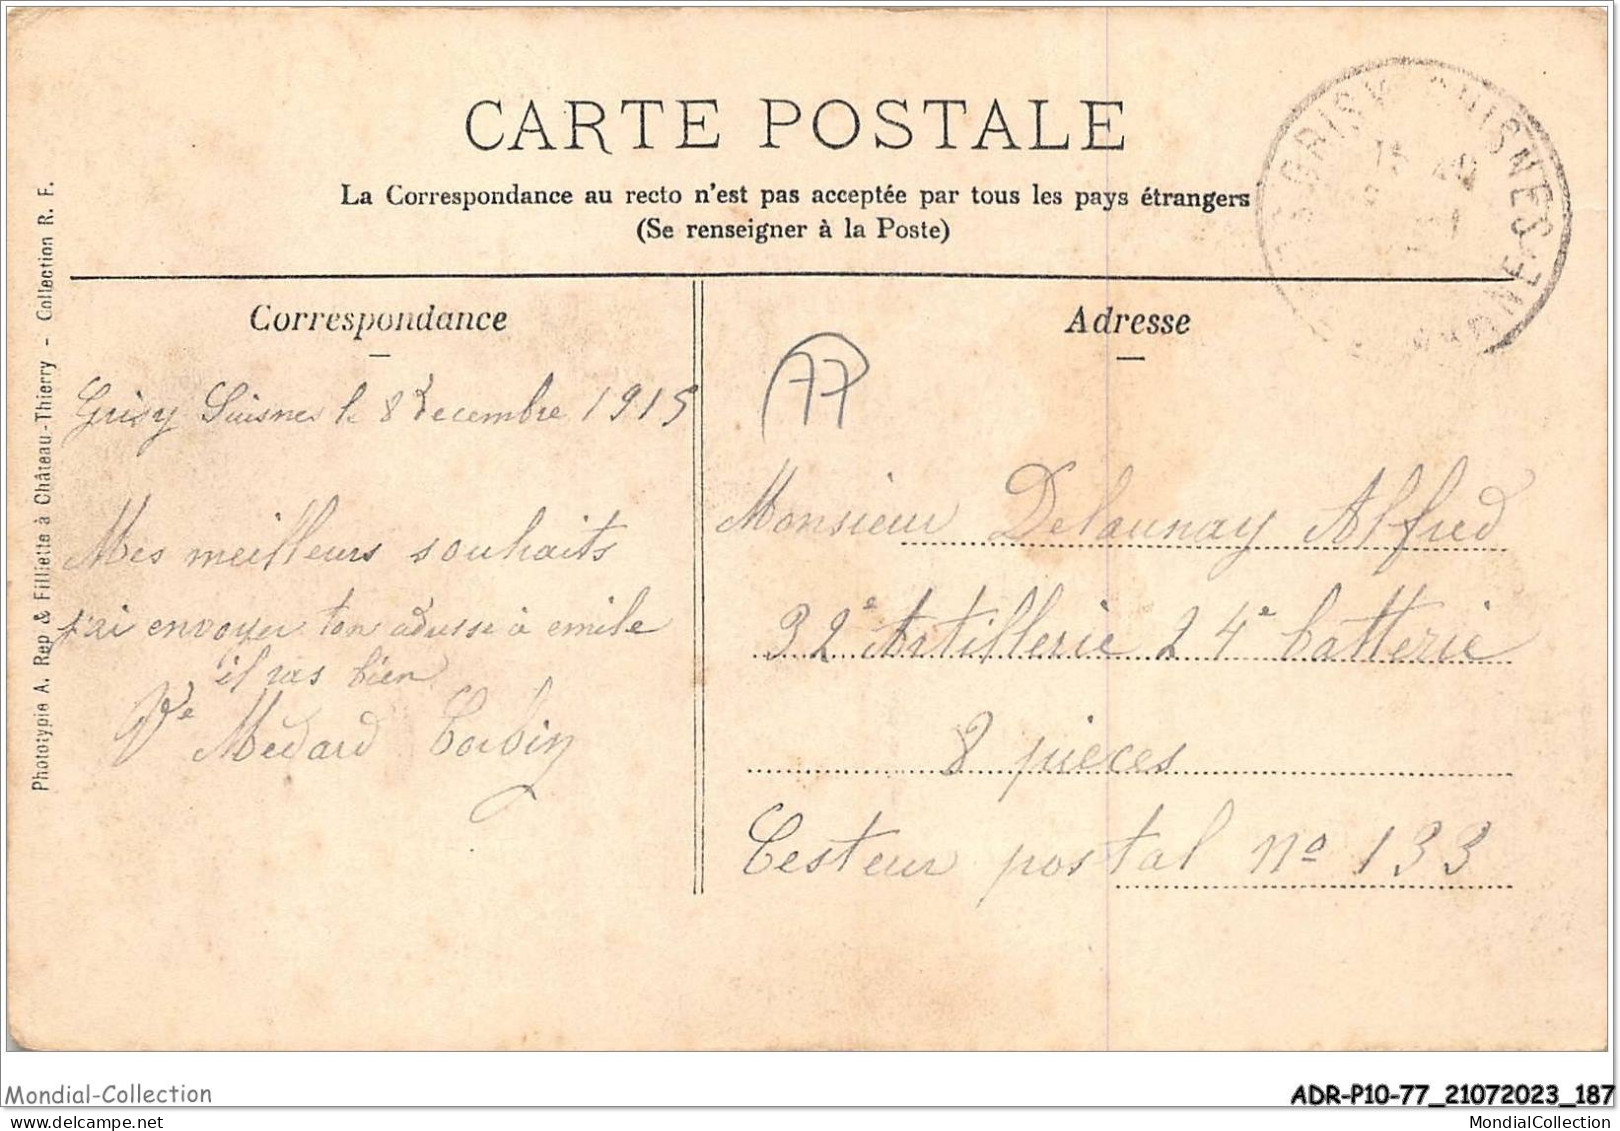 CARTE POSTALE
La Correspondance au recto n'est pas acceptée par tous les pays étrangers
(Se renseigner à la Poste)
GRISY SUISNES
Phototypie A. Rep & Filliette à Château-Thierry - Collection R. F.
Correspondance
Grisy Suisnes le 8 decembre 1915
Mes meilleurs souhaits
j'ai envoyer ton adresse a emile
il vas bien
Ve Medard Corbin
Adresse
77
Monsieur Delaunay Alfred
32e Artillerie 24e batterie
8 pieces
Cesteur postal no 133
Mondial-Collection
ADR-P10-77_21072023_187
delcampe.net
MondialCollection